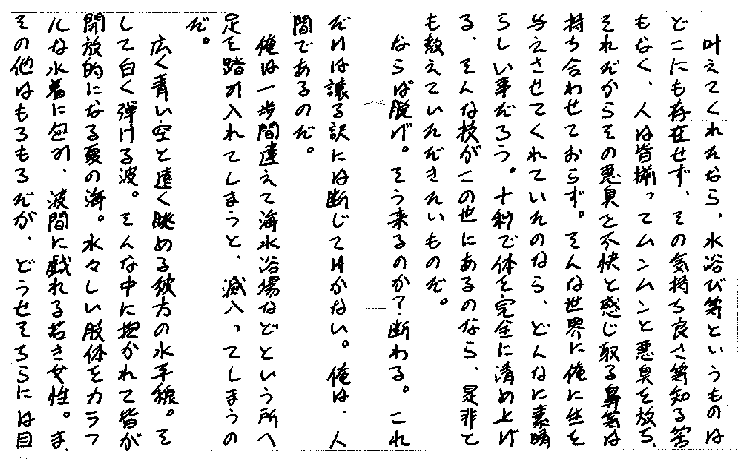 叶えてくれたなら、水浴び等というものは
どこにも存在せず、その気持ち良さ等知る筈
もなく、人は皆揃ってムンムンと悪臭を放ち、
それだからその悪臭を不快と感じ取る鼻等は
持ち合わせておらず。そんな世界に俺に生を
与えさせてくれていたのなら、どんなに素晴
らしい事だろう。十秒で体を完全に清め上げ
る、そんな技がこの世にあるのなら、是非と
も教えていただきたいものだ。
ならば脱げ。そう来るのか？断わる。これ
だけは譲る訳には断じて行かない。俺は、人
間であるのだ。
俺は一歩間違えて海水浴場などという所へ
足を踏み入れてしまうと、滅入ってしまうの
だ。
広く青い空と遠く眺める彼方の水平線。そ
して白く弾ける波。そんな中に抱かれて皆が
開放的になる夏の海。水々しい肢体をカラフ
ルな水着に包み、波間に戯れる若き女性。ま、
その他はもろもろだが、どうせそちらには目